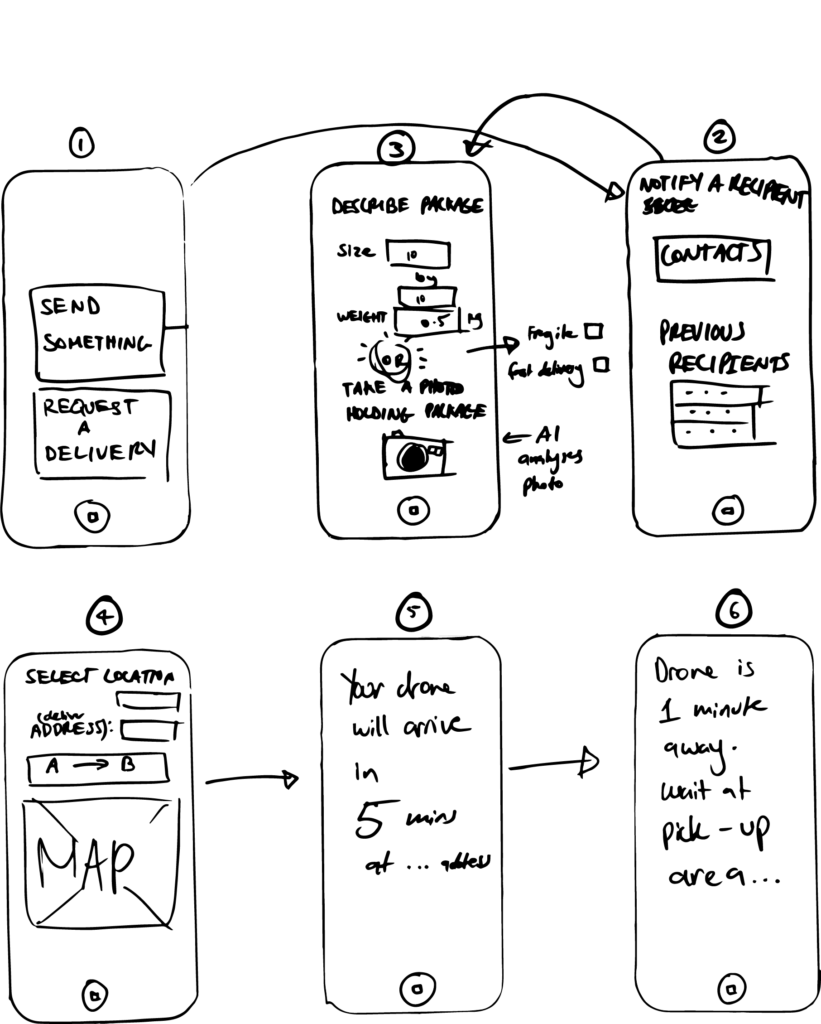 1
SEND
SOMETHING
REQUEST
A
DELIVERY
3
DESCRIBE PACKAGE
Size 10
by
10
WEIGHT 0.5 kg
OR
TAKE A PHOTO
HOLDING PACKAGE
Fragile
fast delivery
← AI
analyses
photo
2
NOTIFY A RECIPIENT
CONTACTS
PREVIOUS
RECIPIENTS
4
SELECT LOCATION
(deliver
ADDRESS):
A → B
MAP
5
Your drone
will arrive
in
5 mins
at ... address
6
Drone is
1 minute
away.
wait at
pick-up
area...